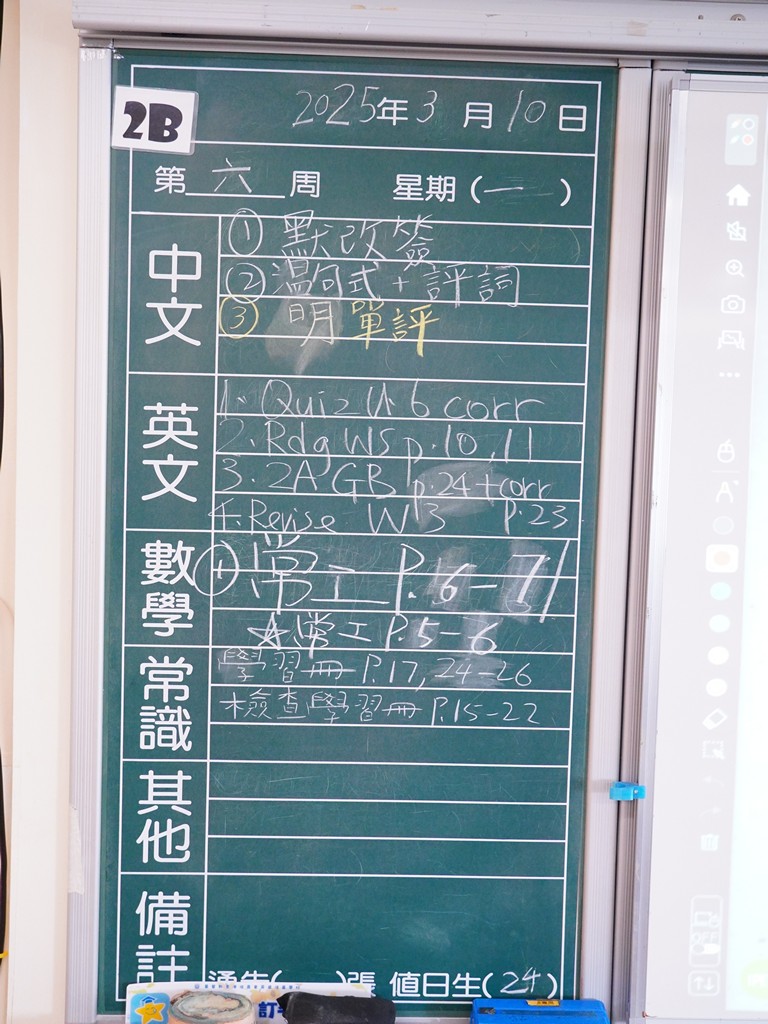 2B
2025年3月10日
第六周 星期(一)
中文
① 默改簽
② 溫句式 + 評詞
③ 明單評
英文
1. Quiz U6 corr
2. Rdg WS p.10,11
3. 2A GB p.24+corr
4. Revise W3 P.23
數學
常工 P.6-7
☆ 常工 P.5-6
常識
學習冊 P.17, 24-26
檢查學習冊 P.15-22
其他
備註
通告( )張 值日生(24)